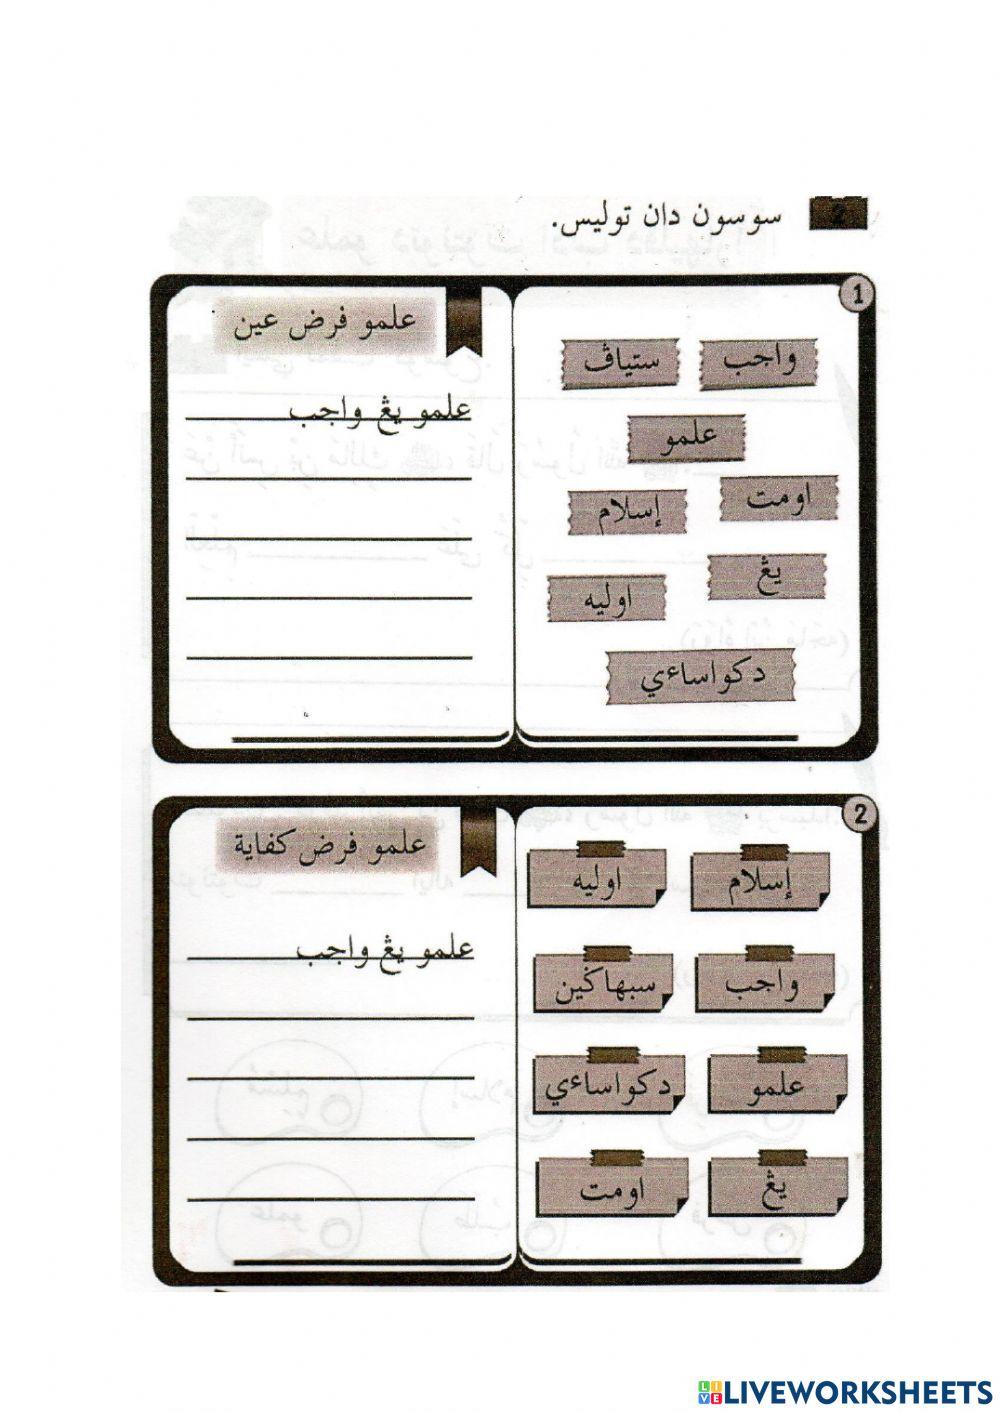 2 سوسون دان توليس.
1
علمو فرض عين
علمو يڠ واجب
واجب
ستياڤ
علمو
اومت
إسلام
يڠ
اوليه
دكواساءي
2
علمو فرض كفاية
علمو يڠ واجب
إسلام
اوليه
واجب
سبهاڬين
علمو
دكواساءي
يڠ
اومت
LIVEWORKSHEETS